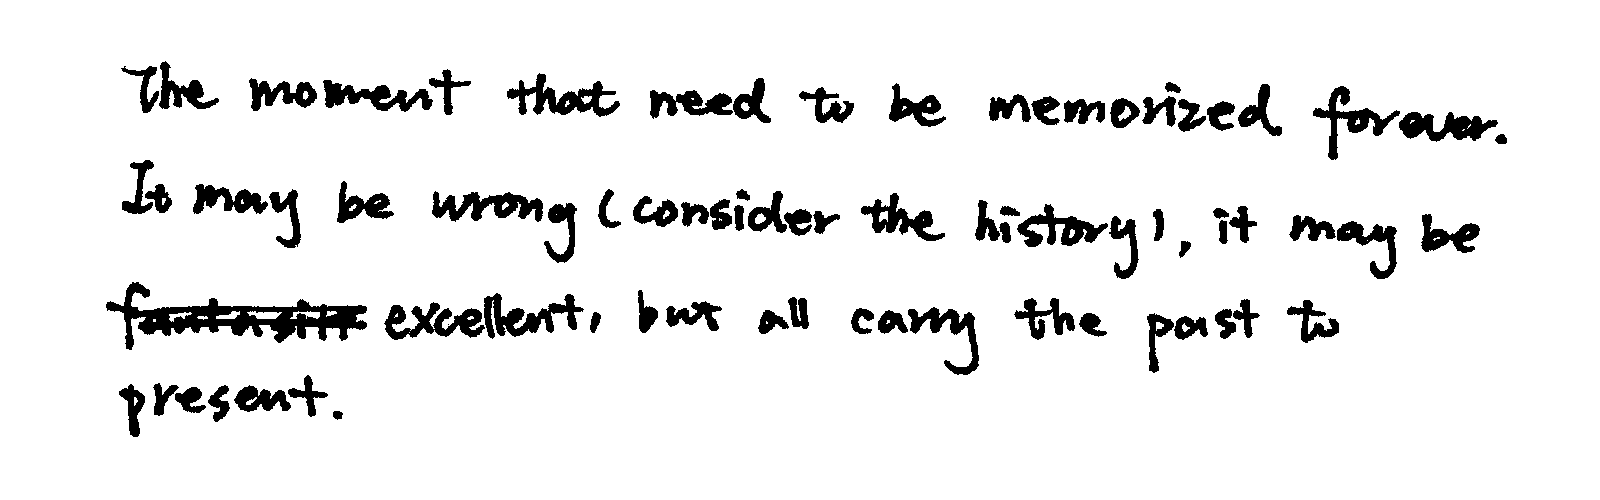 The moment that need to be memorized forever.
It may be wrong (consider the history), it may be
excellent, but all carry the past to
present.